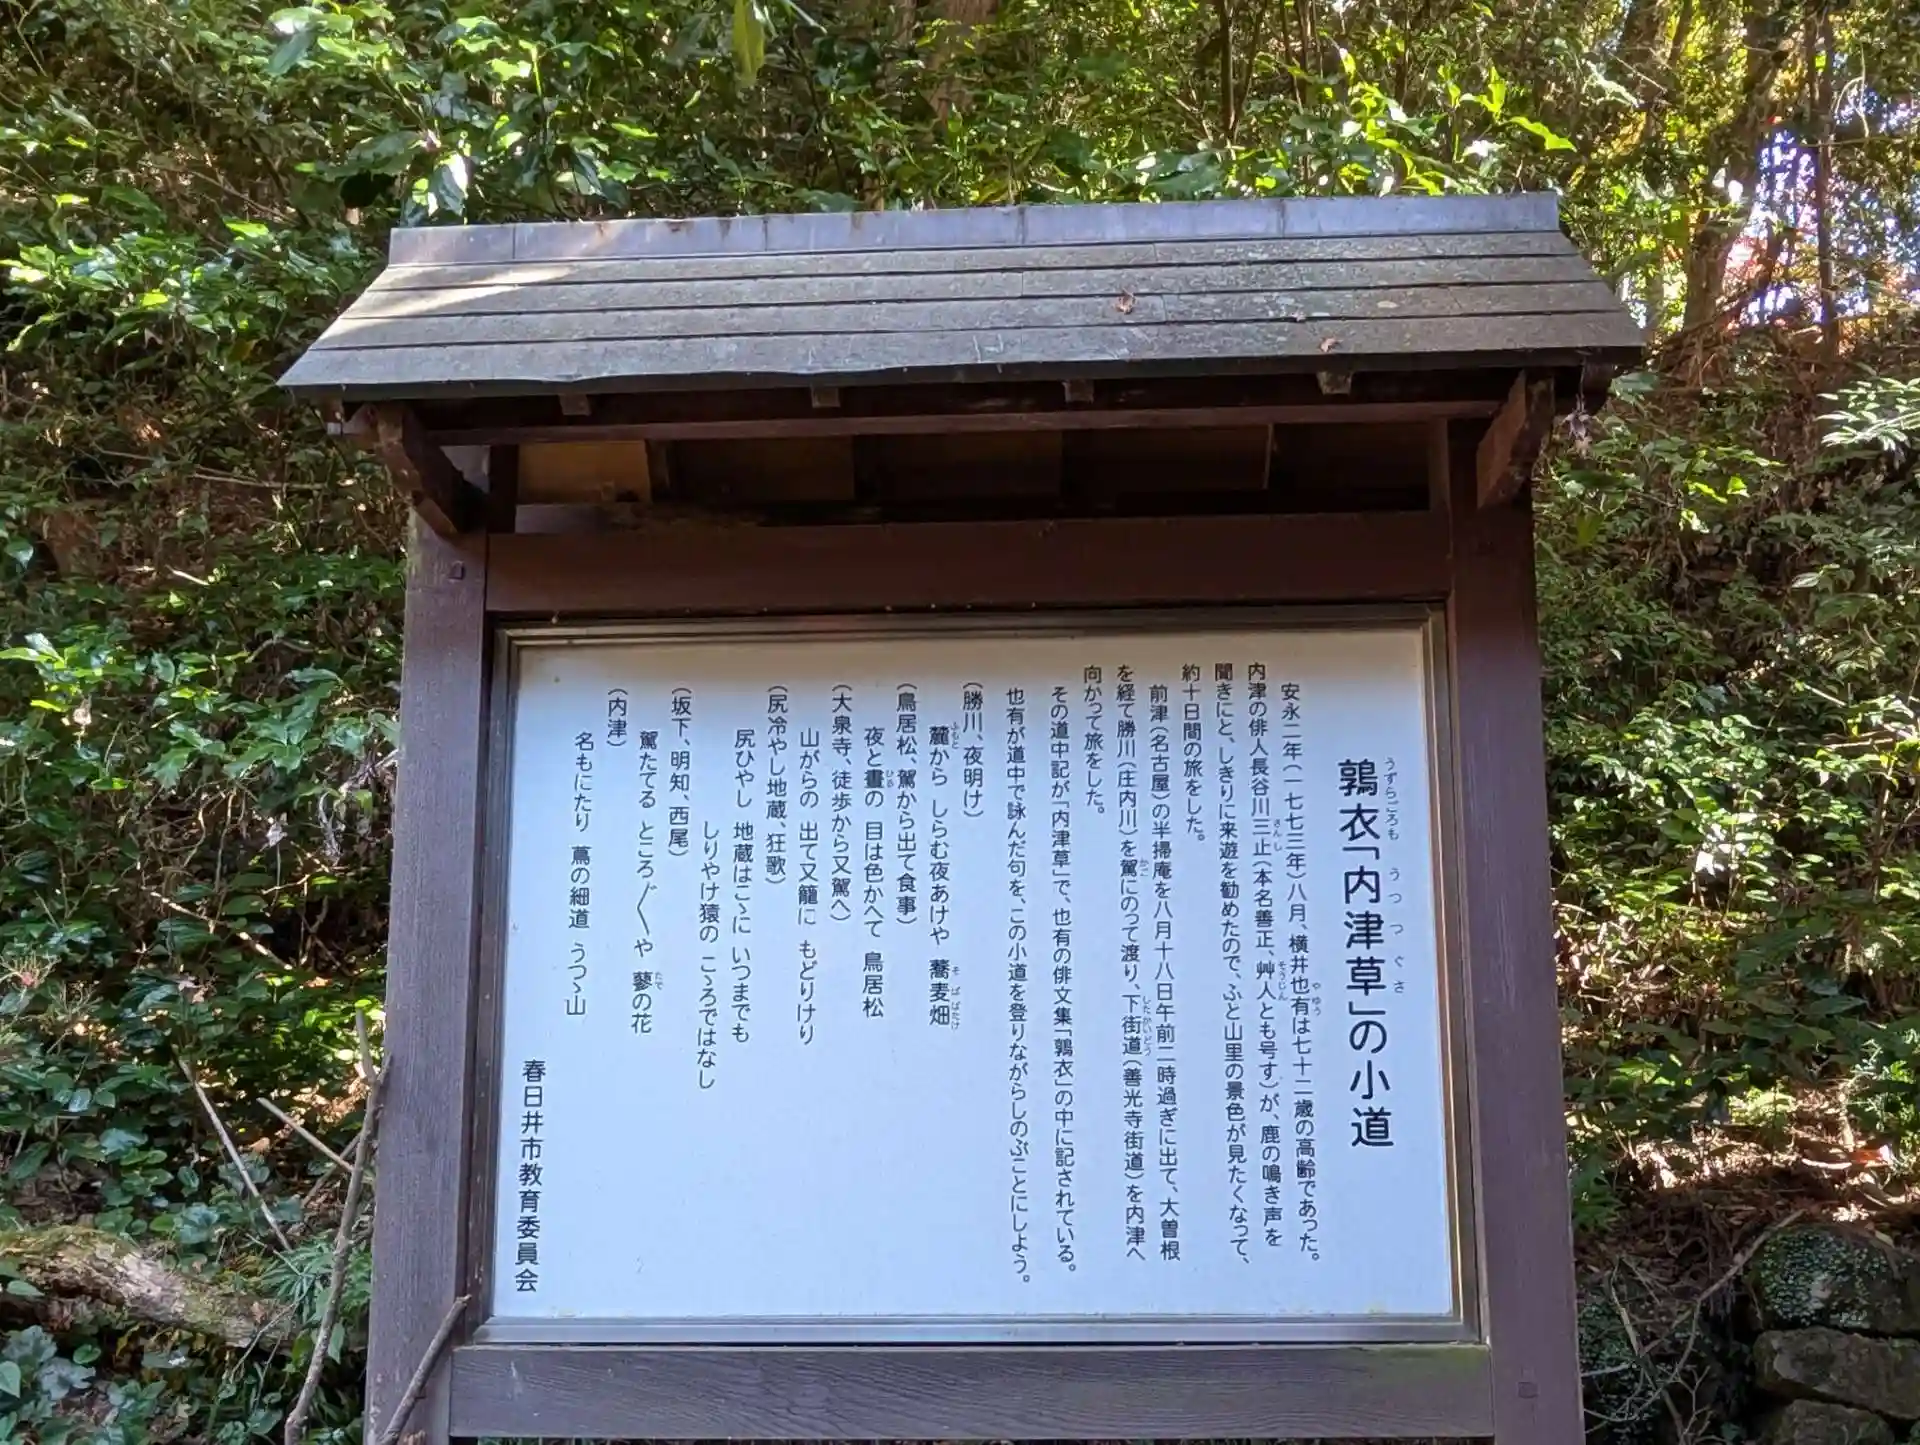 鶉衣「内津草」の小道
安永二年(一七七三年)八月、横井也有は七十二歳の高齢であった。
内津の俳人長谷川三止(本名善正、艸人とも号す)が、鹿の鳴き声を
聞きにと、しきりに来遊を勧めたので、ふと山里の景色が見たくなって、
約十日間の旅をした。
前津(名古屋)の半掃庵を八月十八日午前二時過ぎに出て、大曽根
を経て勝川(庄内川)を駕にのって渡り、下街道(善光寺街道)を内津へ
向かって旅をした。
その道中記が「内津草」で、也有の俳文集「鶉衣」の中に記されている。
也有が道中で詠んだ句を、この小道を登りながらしのぶことにしよう。
(勝川、夜明け)
麓から しらむ夜あけや 蕎麦畑
(鳥居松、駕から出て食事)
夜と晝の 目は色かへて 鳥居松
(大泉寺、徒歩から又駕へ)
山がらの 出て又籠に もどりけり
(尻冷やし地蔵、狂歌)
尻ひやし 地蔵はこゝに いつまでも
しりやけ猿の こゝろではなし
(坂下、明知、西尾)
駕たてる ところ〴〵や 蓼の花
(内津)
名もにたり 蔦の細道 うつゝ山
春日井市教育委員会